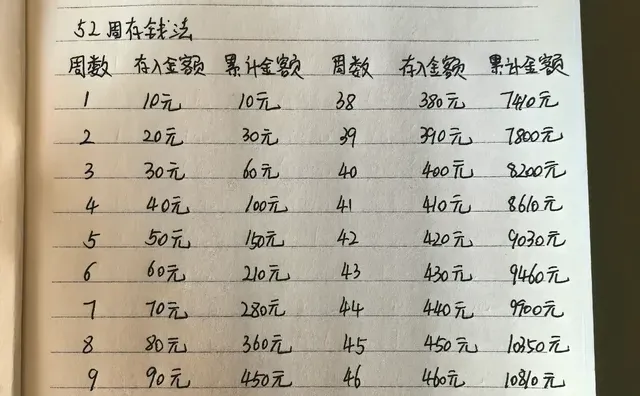 52周存钱法
周数 存入金额 累计金额 周数 存入金额 累计金额
1 10元 10元 38 380元 7410元
2 20元 30元 39 390元 7800元
3 30元 60元 40 400元 8200元
4 40元 100元 41 410元 8610元
5 50元 150元 42 420元 9030元
6 60元 210元 43 430元 9460元
7 70元 280元 44 440元 9900元
8 80元 360元 45 450元 10350元
9 90元 450元 46 460元 10810元